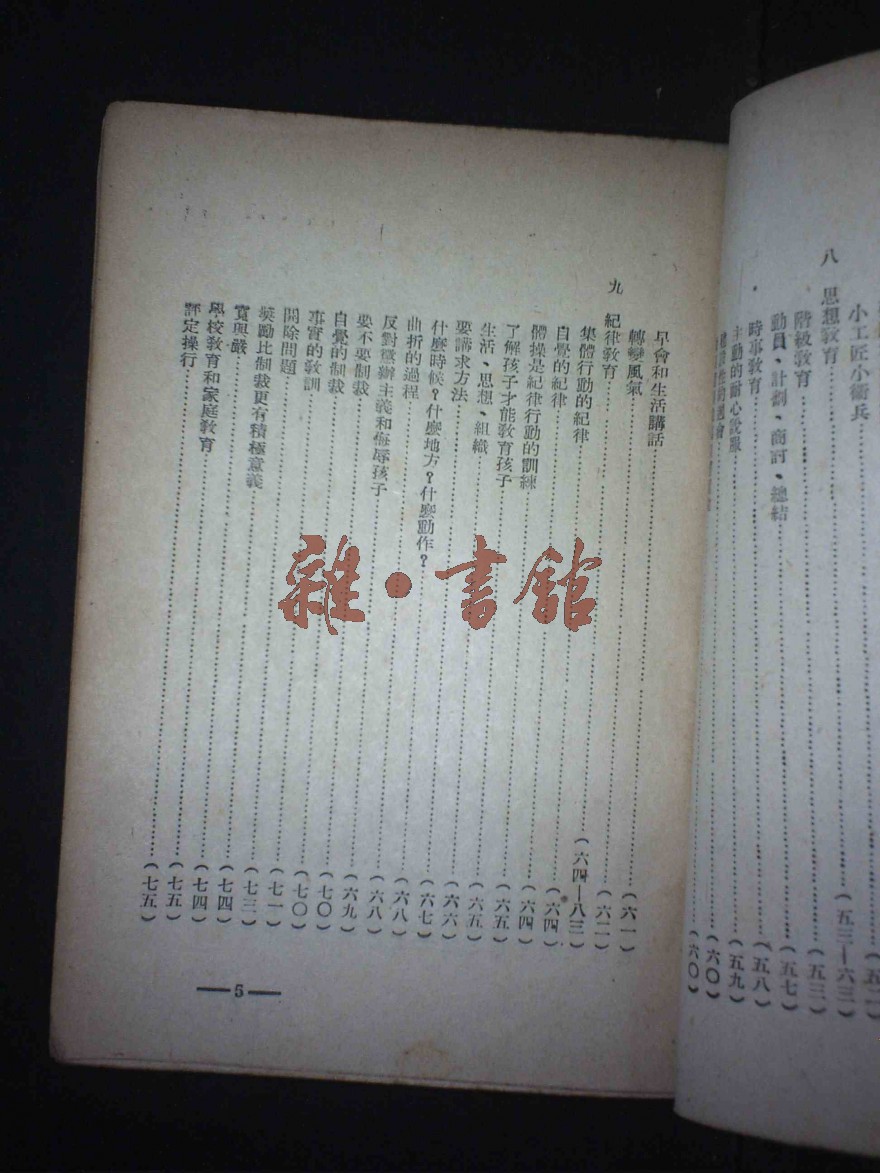 小工匠小衛兵……(五二)
八 思想教育……(五三—六三)
階級教育……(五三)
動員、計劃、商討、總結……(五七)
時事教育……(五八)
主動的耐心說服……(五九)
性的週會……(六〇)
(六〇)
早會和生活講話……(六一)
轉變風氣……(六二)
九 紀律教育……(六四—八三)
集體行動的紀律……(六四)
自覺的紀律……(六四)
體操是紀律行動的訓練……(六五)
了解孩子才能教育孩子……(六五)
生活、思想、組織……(六六)
要講求方法……(六七)
什麼時候?什麼地方?什麼動作?……(六八)
曲折的過程……(六八)
反對懲辦主義和侮辱孩子……(六九)
要不要制裁……(七〇)
自覺的制裁……(七〇)
事實的教訓……(七一)
開除問題……(七三)
獎勵比制裁更有積極意義……(七四)
寬與嚴……(七四)
學校教育和家庭教育……(七五)
評定操行……(七五)
—5—
雜·書館